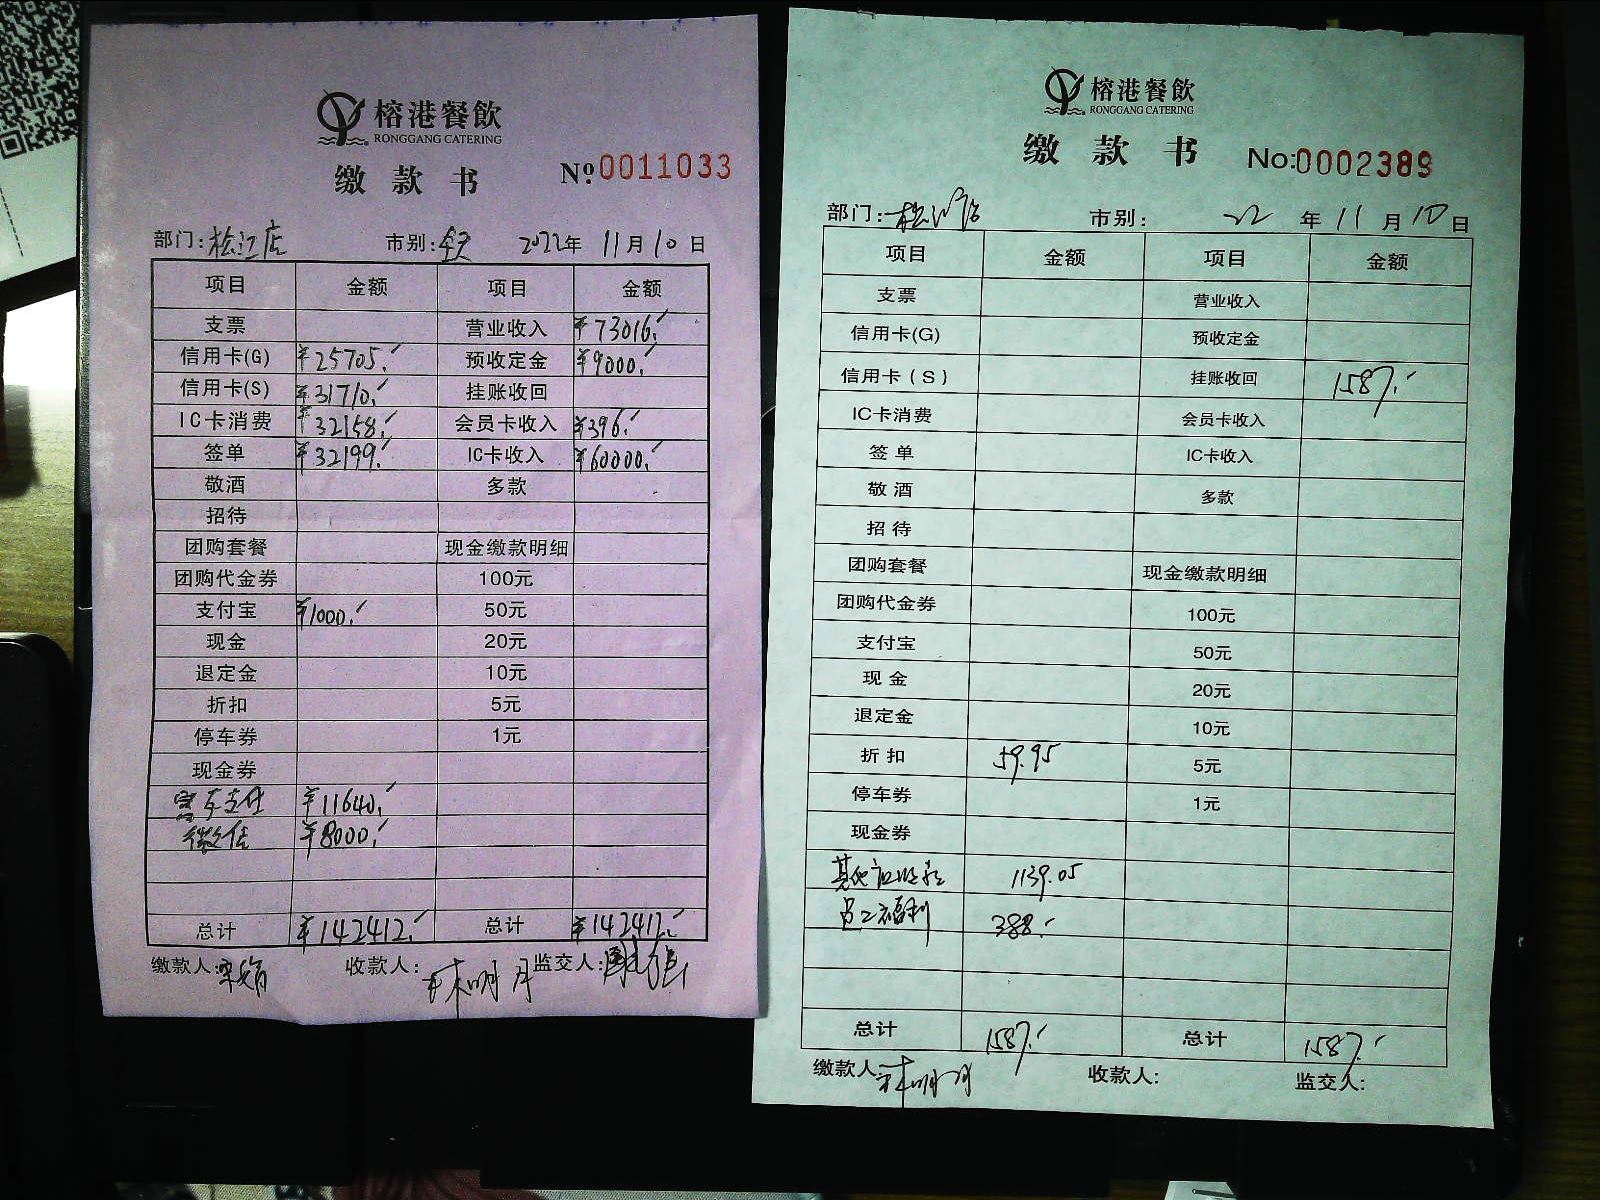 榕港餐飲
RONGGANG CATERING
缴款书 №0011033
部门:松江店 市别:全天 2022年 11月10日
项目 金额 项目 金额
支票 营业收入 ¥73016.
信用卡(G) ¥25705. 预收定金 ¥9000.
信用卡(S) ¥31710. 挂账收回
IC卡消费 ¥32158. 会员卡收入 ¥396.
签单 ¥32199. IC卡收入 ¥60000.
敬酒 多款
招待
团购套餐 现金缴款明细
团购代金券 100元
支付宝 ¥1000. 50元
现金 20元
退定金 10元
折扣 5元
停车券 1元
现金券
支付 ¥11640.
微信 ¥8000.
总计 ¥142412. 总计 ¥142412.
缴款人: 收款人:林明月 监交人:
榕港餐飲
RONGGANG CATERING
缴款书 No:0002389
部门:松江店 市别: 22年11月10日
项目 金额 项目 金额
支票 营业收入
信用卡(G) 预收定金
信用卡(S) 挂账收回 1587.
IC卡消费 会员卡收入
签单 IC卡收入
敬酒 多款
招待
团购套餐 现金缴款明细
团购代金券 100元
支付宝 50元
现金 20元
退定金 10元
折扣 59.95 5元
停车券 1元
现金券
其他应收款 1139.05
员工福利 388.
总计 1587. 总计 1587.
缴款人 林明月 收款人: 监交人: